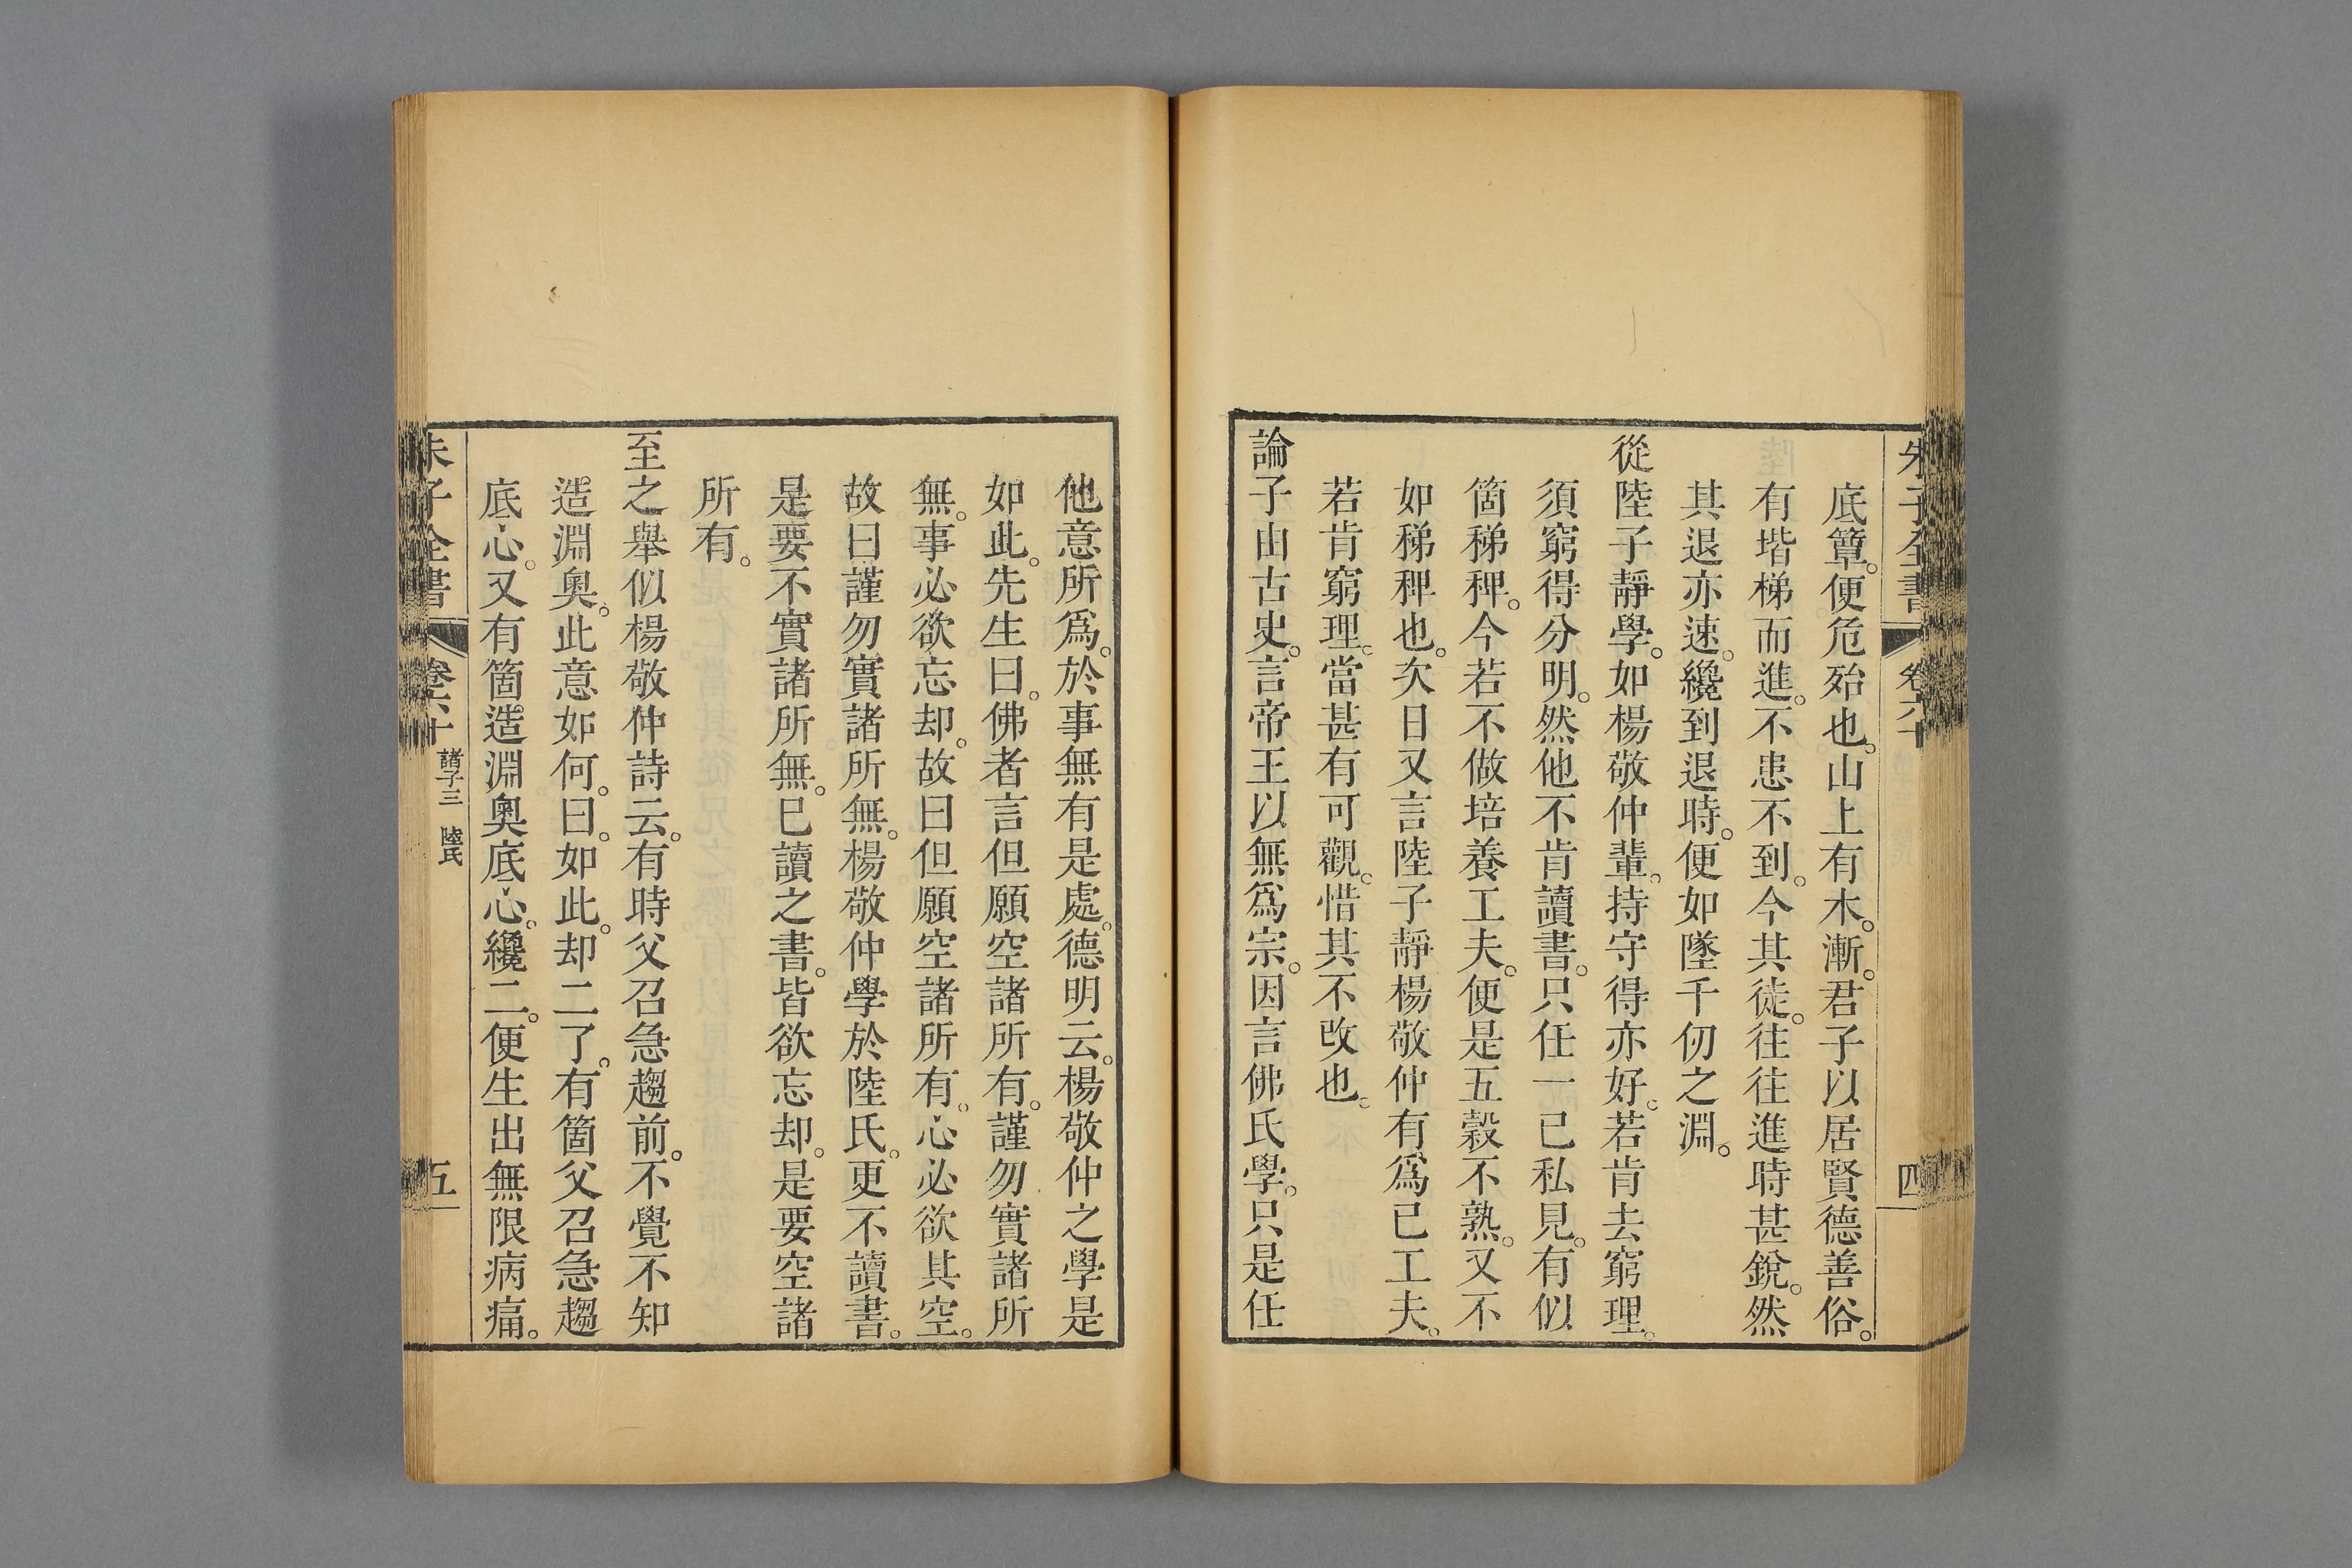 朱子全書 卷六十 四
底簟。便危殆也。山上有木。漸。君子以居賢德善俗。
有堦梯而進。不患不到。今其徒。往往進時甚銳。然
其退亦速。纔到退時。便如墜千仞之淵。
從陸子靜學。如楊敬仲輩。持守得亦好。若肯去窮理。
須窮得分明。然他不肯讀書。只任一己私見。有似
箇稊稗。今若不做培養工夫。便是五穀不熟。又不
如稊稗也。次日又言陸子靜楊敬仲有爲己工夫。
若肯窮理。當甚有可觀。惜其不改也。
論子由古史。言帝王以無爲宗。因言佛氏學。只是任
他意所爲。於事無有是處。德明云。楊敬仲之學是
如此。先生曰。佛者言但願空諸所有。謹勿實諸所
無。事必欲忘却。故曰但願空諸所有。心必欲其空。
故曰謹勿實諸所無。楊敬仲學於陸氏。更不讀書。
是要不實諸所無。已讀之書。皆欲忘却。是要空諸
所有。
至之舉似楊敬仲詩云。有時父召急趨前。不覺不知
造淵奧。此意如何。曰。如此。却二了。有箇父召急趨
底心。又有箇造淵奧底心。纔二。便生出無限病痛。
朱子全書 卷六十 諸子三 陸氏 五